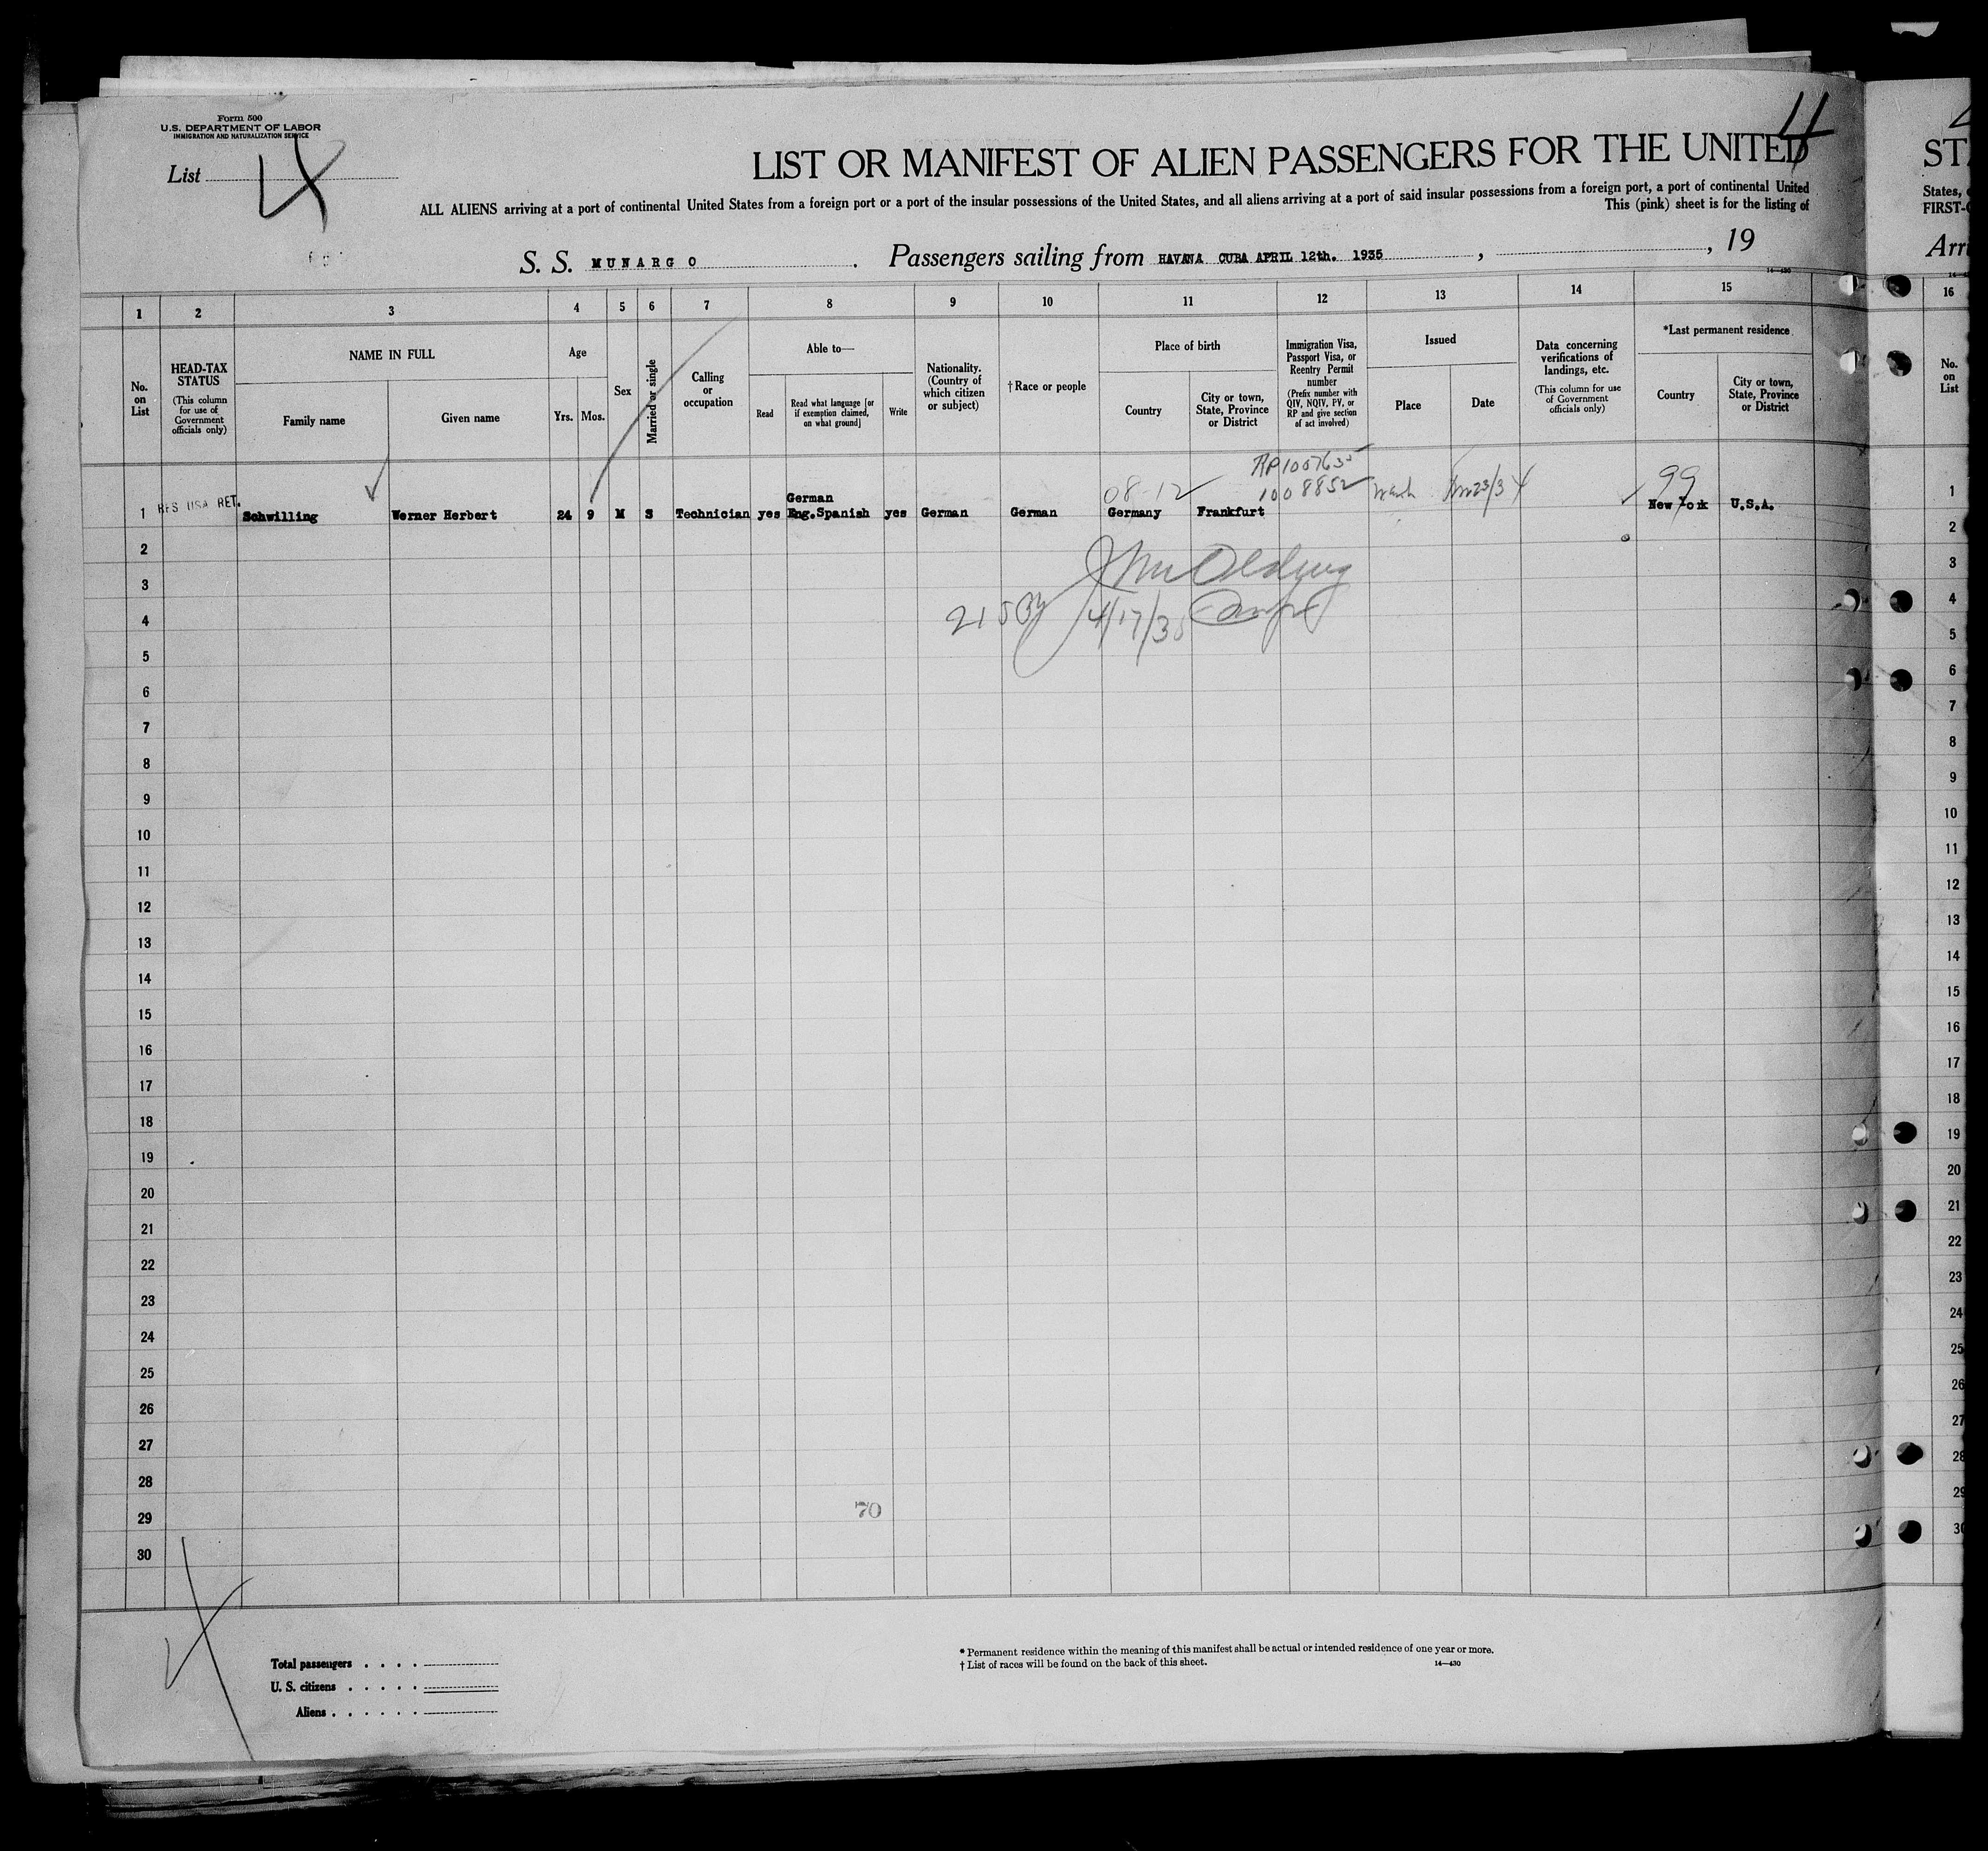 Form 500
U.S. DEPARTMENT OF LABOR
IMMIGRATION AND NATURALIZATION SERVICE
List 4
4
LIST OR MANIFEST OF ALIEN PASSENGERS FOR THE UNITED
ALL ALIENS arriving at a port of continental United States from a foreign port or a port of the insular possessions of the United States, and all aliens arriving at a port of said insular possessions from a foreign port, a port of continental United
This (pink) sheet is for the listing of
S. S. MUNARGO . Passengers sailing from HAVANA CUBA APRIL 12th. 1935 , , 19
14—430
1 2 3 4 5 6 7 8 9 10 11 12 13 14 15
No. on List
HEAD-TAX STATUS
(This column for use of Government officials only)
NAME IN FULL
Family name
Given name
Age
Yrs.
Mos.
Sex
Married or single
Calling or occupation
Able to—
Read
Read what language [or if exemption claimed, on what ground]
Write
Nationality. (Country of which citizen or subject)
†Race or people
Place of birth
Country
City or town, State, Province or District
Immigration Visa, Passport Visa, or Reentry Permit number
(Prefix number with QIV, NQIV, PV, or RP and give section of act involved)
Issued
Place
Date
Data concerning verifications of landings, etc.
(This column for use of Government officials only)
*Last permanent residence
Country
City or town, State, Province or District
RP1007635
08-12 1008852 99
German
1 RES USA RET. Schwilling Werner Herbert 24 9 M S Technician yes Eng.Spanish yes German German Germany Frankfurt Wash 23/34 New York U.S.A.
2
3
4
4/17/35
5
6
7
8
9
10
11
12
13
14
15
16
17
18
19
20
21
22
23
24
25
26
27
28
70
29
30
4
Total passengers
U. S. citizens
Aliens
* Permanent residence within the meaning of this manifest shall be actual or intended residence of one year or more.
† List of races will be found on the back of this sheet.
14—430
STA
States,
FIRST-
Arri
16
No. on List
1
2
3
4
5
6
7
8
9
10
11
12
13
14
15
16
17
18
19
20
21
22
23
24
25
26
27
28
29
30